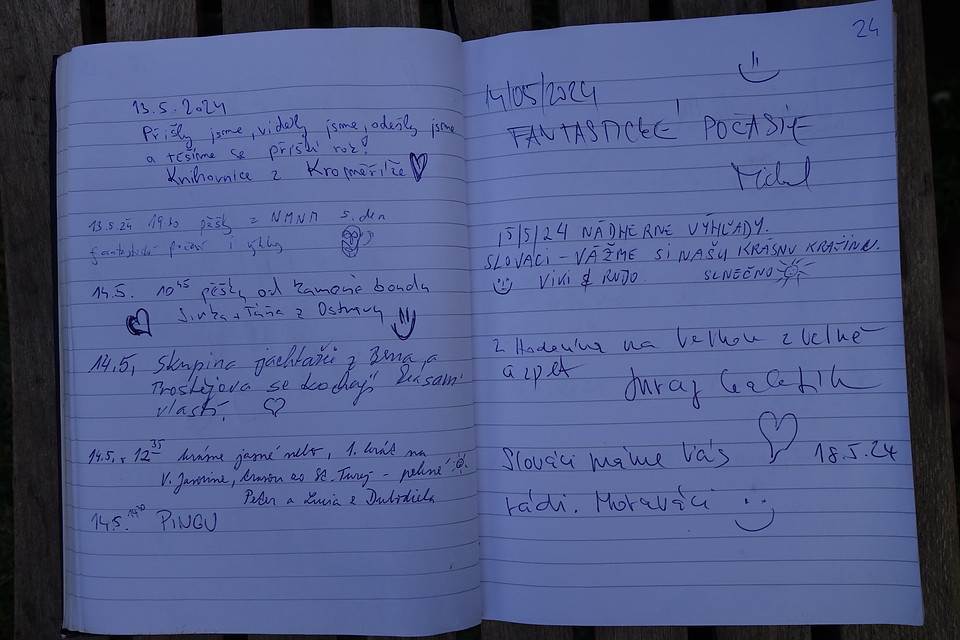 13.5.2024
Přišly jsme, viděly jsme, odešly jsme
a těšíme se příští rok!
Knihovnice z Kroměříže
13.5.24 19.10 pěšky z NMNM 5. den
fantastické počasí i výhledy
14.5. 10 45 pěšky od
Jirka + Táňa z Ostravy
14.5. Skupina jachtařů z Brna a
Prostějova se kochají krásami
vlasti.
14.5., 12 35 krásne jasné nebo, 1. krát na
V. Javorine, - pekné
Peter a Lucia z Dubodiela
14.5. PINGU
24
14/05/2024
FANTASTICKÉ POČASIE
Michal
15/5/24 NÁDHERNE VÝHĽADY.
SLOVÁCI - VÁŽME SI NAŠU KRÁSNU KRAJINU.
VIKI & RUDO SLNEČNO
z na Veľkou
a zpět
Juraj
Slováci máme Vás 18.5.24
rádi. Moraváci